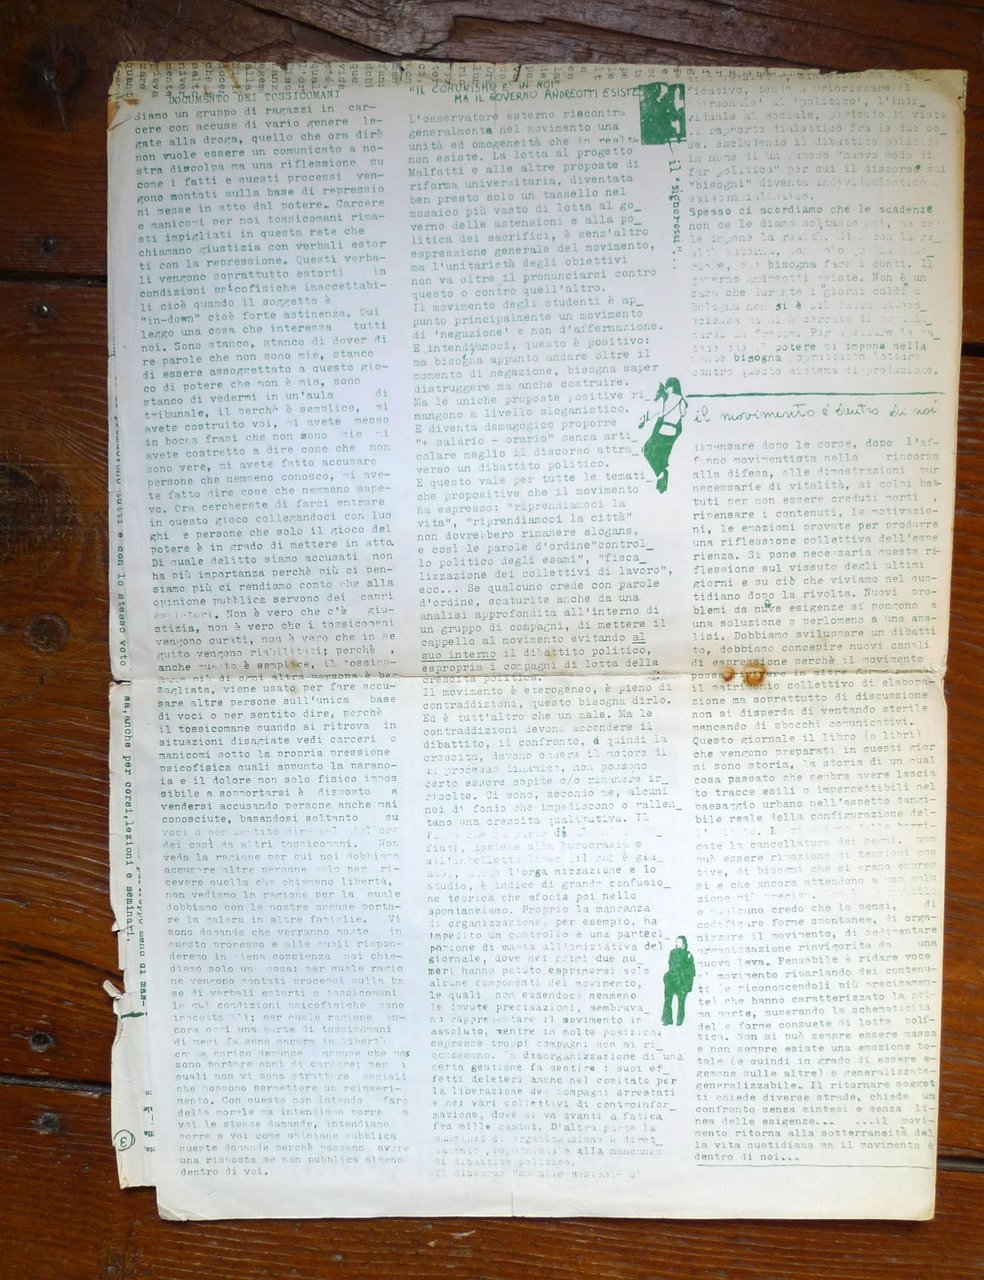 DOCUMENTO DEI TOSSICOMANI
Siamo un gruppo di ragazzi in car-
cere con accuse di vario genere le-
gate alla droga, quello che ora dirò
non vuole essere un comunicato a no-
stra discolpa ma una riflessione su
come i fatti e questi processi ven-
gono montati sulla base di repressio
ni messe in atto dal potere. Carcere
e manicomi per noi tossicomani rima-
sti impigliati in questa rete che
chiamano giustizia con verbali estor
ti con la repressione. Questi verba-
li vengono soprattutto estorti in
condizioni psicofisiche inaccettabi-
li cioè quando il soggetto è
"in-down" cioè forte astinenza. Qui
leggo una cosa che interessa tutti
noi. Sono stanco, stanco di dover di
re parole che non sono mie, stanco
di essere assoggettato a questo gio-
co di potere che non è mio, sono
stanco di vedermi in un'aula di
tribunale, il perchè è semplice, mi
avete costruito voi, mi avete messo
in bocca frasi che non sono mie mi
avete costretto a dire cose che non
sono vere, mi avete fatto accusare
persone che nemmeno conosco, mi ave-
te fatto dire cose che nemmeno sape-
vo. Ora cercherete di farci entrare
in questo gioco collegandoci con luo
ghi e persone che solo il gioco del
potere è in grado di mettere in atto.
Di quale delitto siamo accusati non
ha più importanza perchè più ci pen-
siamo più ci rendiamo conto che alla
opinione pubblica servono dei capri
espiatori. Non è vero che c'è giu-
stizia, non è vero che i tossicomani
vengono curati, non è vero che in se
guito vengono riabilitati; perchè,
anche questo è semplice, il tossico-
mane più di ogni altra persona è ber
sagliata, viene usato per fare accu-
sare altre persone sull'unica base
di voci o per sentito dire, perchè
il tossicomane quando si ritrova in
situazioni disagiate vedi carceri o
manicomi sotto la propria pressione
psicofisica quali appunto la parano-
ia e il dolore non solo fisico impos
sibile a sopportarsi è disposto a
vendersi accusando persone anche mai
conosciute, basandosi soltanto su
voci o per sentito dire nel migliore
dei casi da altri tossicomani. Non
vedo la ragione per cui noi dobbiamo
accusare altre persone solo per ri-
cevere quella che chiamano libertà,
non vediamo la ragione per la quale
dobbiamo con le nostre accuse porta-
re la galera in altre famiglie. Vi
sono domande che verranno poste in
questo processo e alle quali rispon-
deremo in piena coscienza noi chie-
diamo solo una cosa: per quale ragio
ne vengono montati processi sulla ba
se di verbali estorti a tossicomani
le cui condizioni psicofisiche sono
per quale ragione an-
cora oggi una parte di tossicomani
di mesi fa sono ancora in libertà
accuse che non
sono portare anni di carcere; per i
quali non vi sono strutture sociali
che possono permettere un reinseri-
mento. Con questo non intendo fare
della morale ma intendiamo porre a
voi le stesse domande, intendiamo
porre a voi come opinione pubblica
queste domande perchè possano avere
una risposta se non pubblica almeno
dentro di voi.
"IL COMUNISMO E' IN NOI"
MA IL GOVERNO ANDREOTTI ESISTE
L'osservatore esterno riscontra
generalmente nel movimento una
unità ed omogeneità che in realtà
non esiste. La lotta al progetto
Malfatti e alle altre proposte di
riforma universitaria, diventata
ben presto solo un tassello nel
mosaico più vasto di lotta al go_
verno delle astensioni e alla po_
litica dei sacrifici, è senz'altro
espressione generale del movimento,
ma l'unitarietà degli obiettivi
non va oltre il pronunciarsi contro
questo o contro quell'altro.
Il movimento degli studenti è ap_
punto principalmente un movimento
di 'negazione' e non d'affermazione.
E intendiamoci, questo è positivo:
ma bisogna appunto andare oltre il
momento di negazione, bisogna saper
distruggere ma anche costruire.
Ma le uniche proposte positive ri_
mangono a livello sloganistico.
E diventa demagogico proporre
"+ salario - orario" senza arti_
colare meglio il discorso attra_
verso un dibattito politico.
E questo vale per tutte le temati_
che propositive che il movimento
ha espresso: "riprendiamoci la
vita", "riprendiamoci la città"
non dovrebbero rimanere slogans,
e così le parole d'ordine"control_
lo politico degli esami", "fisca_
lizzazione dei collettivi di lavoro",
ecc... Se qualcuno crede con parole
d'ordine, scaturite anche da una
analisi approfondita all'interno di
un gruppo di compagni, di mettere il
cappello al movimento evitando al
suo interno il dibattito politico,
espropria i compagni di lotta della
crescita politica.
Il movimento è eterogeneo, è pieno di
contraddizioni, questo bisogna dirlo.
Ed è tutt'altro che un male. Ma le
contraddizioni devono accendere il
dibattito, il confronto, e quindi la
crescita, devono essere il motore di
un processo dinamico, non possono
certo essere sopite e/o rimanere ir_
risolte. Ci sono, secondo me, alcuni
nei di fondo che impediscono o rallen_
tano una crescita qualitativa. Il
fiuti, assieme alla burocrazia e
l'organizzazione e lo
studio, è indice di grande confusio_
ne teorica che sfocia poi nello
spontaneismo. Proprio la mancanza
di organizzazione, per esempio, ha
impedito un controllo e una parteci_
pazione di massa all'iniziativa del
giornale, dove nei primi due nu_
meri hanno potuto esprimersi solo
alcune componenti del movimento,
le quali non essendoci nemmeno
le dovute precisazioni, sembrava_
no rappresentare il movimento in
assoluto, mentre in molte posizioni
espresse troppi compagni non si ri_
conoscono. La disorganizzazione di una
certa gestione fa sentire i suoi ef_
fetti deleteri anche nel comitato per
la liberazione dei compagni arrestati
e nei vari collettivi di controinfor_
mazione, dove si va avanti a fatica
fra mille casini. D'altra parte la
mancanza di organizzazione è diret_
tamente proporzionale alla mancanza
di dibattito politico.
il "signorossi"...
ificativo, tende a
'personale' al 'politico', l'indi_
viduale al sociale, perdendo di vista
il rapporto dialettico fra le due co_
se, escludendo il dibattito politico
in nome di un famoso "nuovo modo di
far politica" per cui il discorso sui
"bisogni" diventa individualistico e
Spesso ci scordiamo che le scadenze
non ce le diamo soltanto noi, ma ce
bisogna fare i conti. Il
governo Andreotti esiste. Non è un
caso che durante i "giorni caldi" a
Bologna non si è
potere si impone nella
bisogna soprattutto lottare
contro questo sistema di produzione.
il movimento è dentro di noi
Ripensare dopo le corse, dopo l'af-
fanno movimentista nella rincorsa
alla difesa, alle dimostrazioni pur
necessarie di vitalità, ai colpi bat-
tuti per non essere creduti morti,
ripensare i contenuti, le motivazio-
ni, le emozioni provate per produrre
una riflessione collettiva dell'espe
rienza. Si pone necessaria questa ri-
flessione sul vissuto degli ultimi
giorni e su ciò che viviamo nel quo-
tidiano dopo la rivolta. Nuovi pro-
blemi da nuove esigenze si pongono a
una soluzione o perlomeno a una ana-
lisi. Dobbiamo sviluppare un dibatti
to, dobbiamo concepire nuovi canali
di espressione perchè il movimento
possa vivere in altre forme perchè
il patrimonio collettivo di elabora-
zione ma soprattutto di discussione
non si disperda di ventando sterile
mancando di sbocchi comunicativi.
Questo giornale il libro (o libri)
che vengono preparati in questi gior
ni sono storia, la storia di un qual
cosa passato che sembra avere lascia
to tracce esili o impercettibili nel
paesaggio urbano nell'aspetto tangi-
bile reale della configurazione del-
cate la cancellatura dei segni, non
può essere rimozione di tensioni emo
tive, di bisogni che si erano espres
si e che ancora attendono a una solu
zione più precisa.
E qualcuno credo che lo pensi, di
codificare forme spontanee, di orga-
nizzare il movimento, di sedimentare
organizzazione rinvigorita da una
nuova leva. Pensabile è ridare voce
al movimento riparlando dei contenu-
ti (e riconoscendoli più precisamen-
te) che hanno caratterizzato la pri-
ma parte, superando la schematicità
delle forme consuete di lotta poli-
tica. Non si può sempre essere massa
e non sempre esiste una emozione to-
tale (e quindi in grado di essere e-
gemone sulle altre) e generalizzata-
generalizzabile. Il ritornare sogget
ti chiede diverse strade, chiede un
confronto senza sintesi e senza li-
nea delle esigenze... ...il movi-
mento ritorna alla sotterraneità del
la vita quotidiana ma il movimento è
dentro di noi...
e con lo stesso voto
sa, anche per corsi, lezioni e seminari.
3